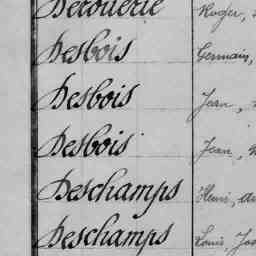 Derouerie Roger,
Desbois Germain,
Desbois Jean,
Desbois Jean,
Deschamps Henri,
Deschamps Louis, Jos